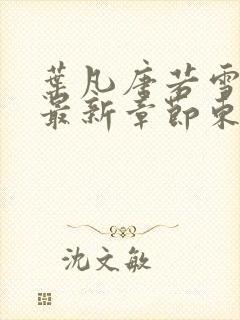 葉凡唐若雪
最新章節東
沈文敏